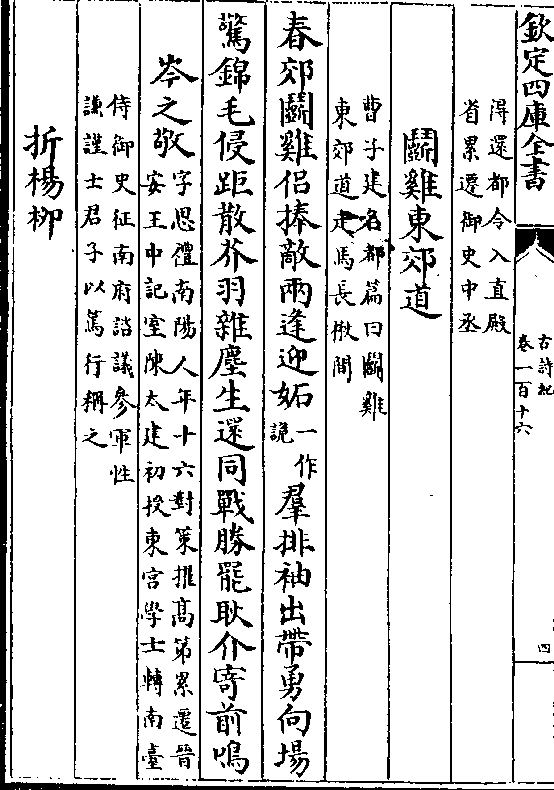 欽定四庫全書
古詩紀
卷一百十六
四
得還都令入直殿
省累遷御史中丞
鬭雞東郊道
曹子建名都篇曰鬭雞
東郊道走馬長楸間
春郊鬭雞侶捧敵兩逢迎妬一作
説羣排袖出帶勇向場
驚錦毛侵距散芥羽雜塵生還同戰勝罷耿介寄前鳴
岑之敬字思禮南陽人年十六對策擢高第累遷晉
安王中記室陳太建初授東宮學士轉南臺
侍御史征南府諮議參軍性
謙謹士君子以篤行稱之
折楊栁